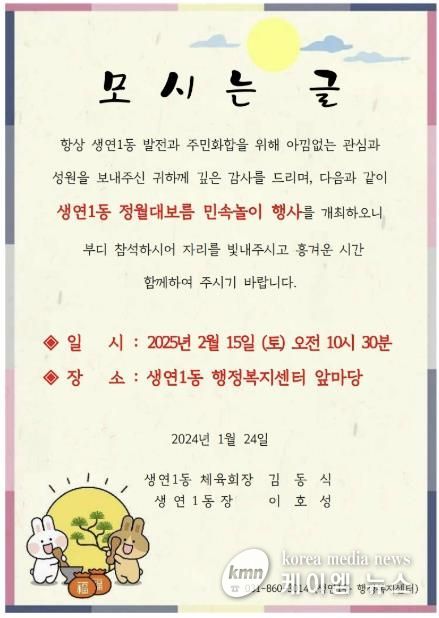 모 시 는 글
항상 생연1동 발전과 주민화합을 위해 아낌없는 관심과
성원을 보내주신 귀하께 깊은 감사를 드리며, 다음과 같이
생연1동 정월대보름 민속놀이 행사를 개최하오니
부디 참석하시어 자리를 빛내주시고 흥겨운 시간
함께하여 주시기 바랍니다.
◈ 일 시 : 2025년 2월 15일 (토) 오전 10시 30분
◈ 장 소 : 생연1동 행정복지센터 앞마당
2024년 1월 24일
생연1동 체육회장 김 동 식
생 연 1 동 장 이 호 성
福
kmn korea media news
케이엠 뉴스
행정복지센터)